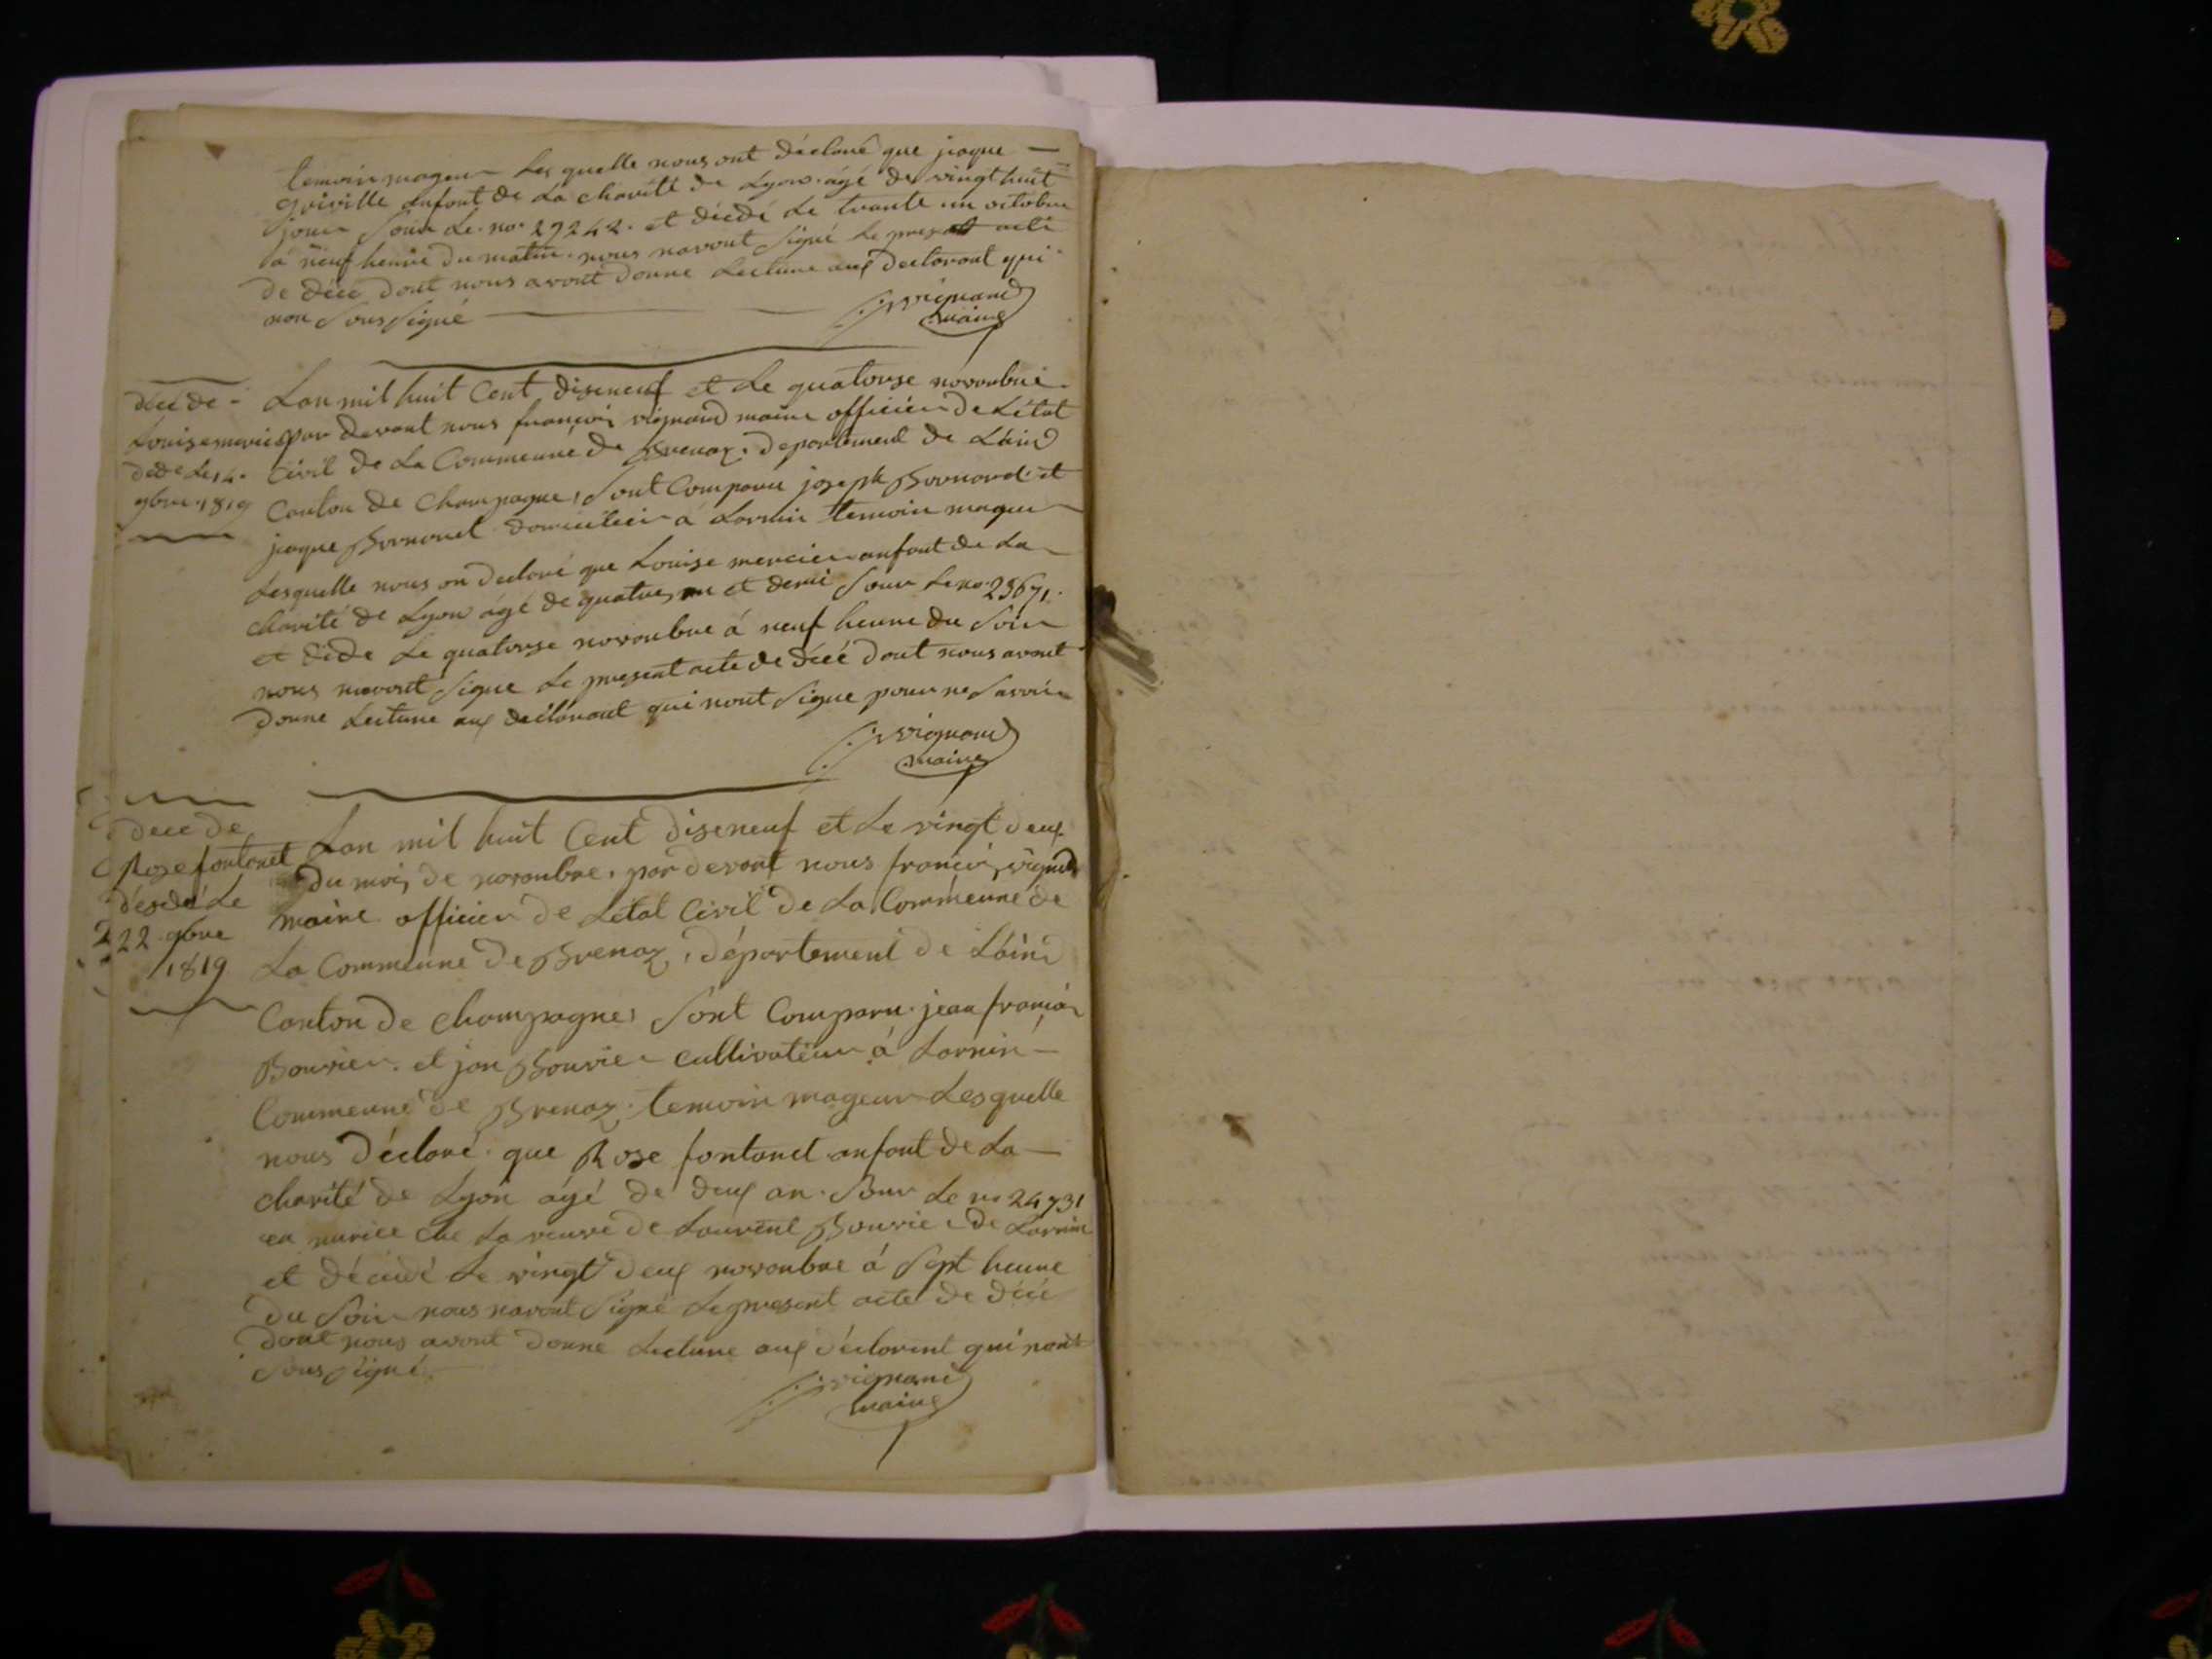 temoin mageur Les quelle nous ont déclaré que jaque
griville anfont de La charité de Lyon. agé de vingt huit
jour Sour Le. no. 29242. et décdé Le trante un octobre
á neuf heure du matin. nous navont Signé Le present acte
de décé dont nous avont donne Lecture aux declarant qui
non Sous Signé
vignand
maire
décé de
Louise mercier
déde Le 14.
9bre. 1819
Lan mil huit Cent diseneuf et Le quatorse novonbre
par devant nous françoi vignand maire officier de Létat
Civil de La Commeune de Brenaz. departement de Láind
Canton de Champagne, Sont Comparu joseph Bornard et
jaque Bornard domicilier á Lornin temoin mageur
Lesquelle nous on declaré que Louise mercier anfant de La
charité de Lyon ágé de quatre an et demi Sour Le no. 23671.
et déde Le quatorse novonbre á neuf heure du Soir
nous navont Signe Le present acte de décé dont nous avont
donne Lecture aux declárant qui nont Signe pour ne Savoir
vignand
maire
dece de
Rose fontanet
désedé Le
22. 9bre
1819
Lan mil huit Cent diseneuf et Le vingt deux
du moi, de novonbre, par devant nous francoi, vignd
maire officier de Letat Civil de La Commeune de
La Commeune de Brenaz, département de Láind
Canton de Champagne, Sont Comparu. jean françoi
Bouvier. et jan Bouvier cultivateur á Lornin
Commeune de Brenaz. temoin mageur Lesquelle
nous déclaré. que Rose fontanet anfant de La
charité de Lyon ágé de deux an. Sour Le no 24731
en nurice ché La veuve de Laurent Bouvier de Lornin
et décédé Le vingt deux novonbre á Sept heure
du Soir nous navont Signé Le present acte de décé
dont nous avont donne Lecture aux déclarent qui nont
Sous Signé
vignand
maire